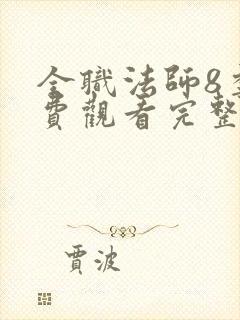 全職法師8
費觀看完整
賈波